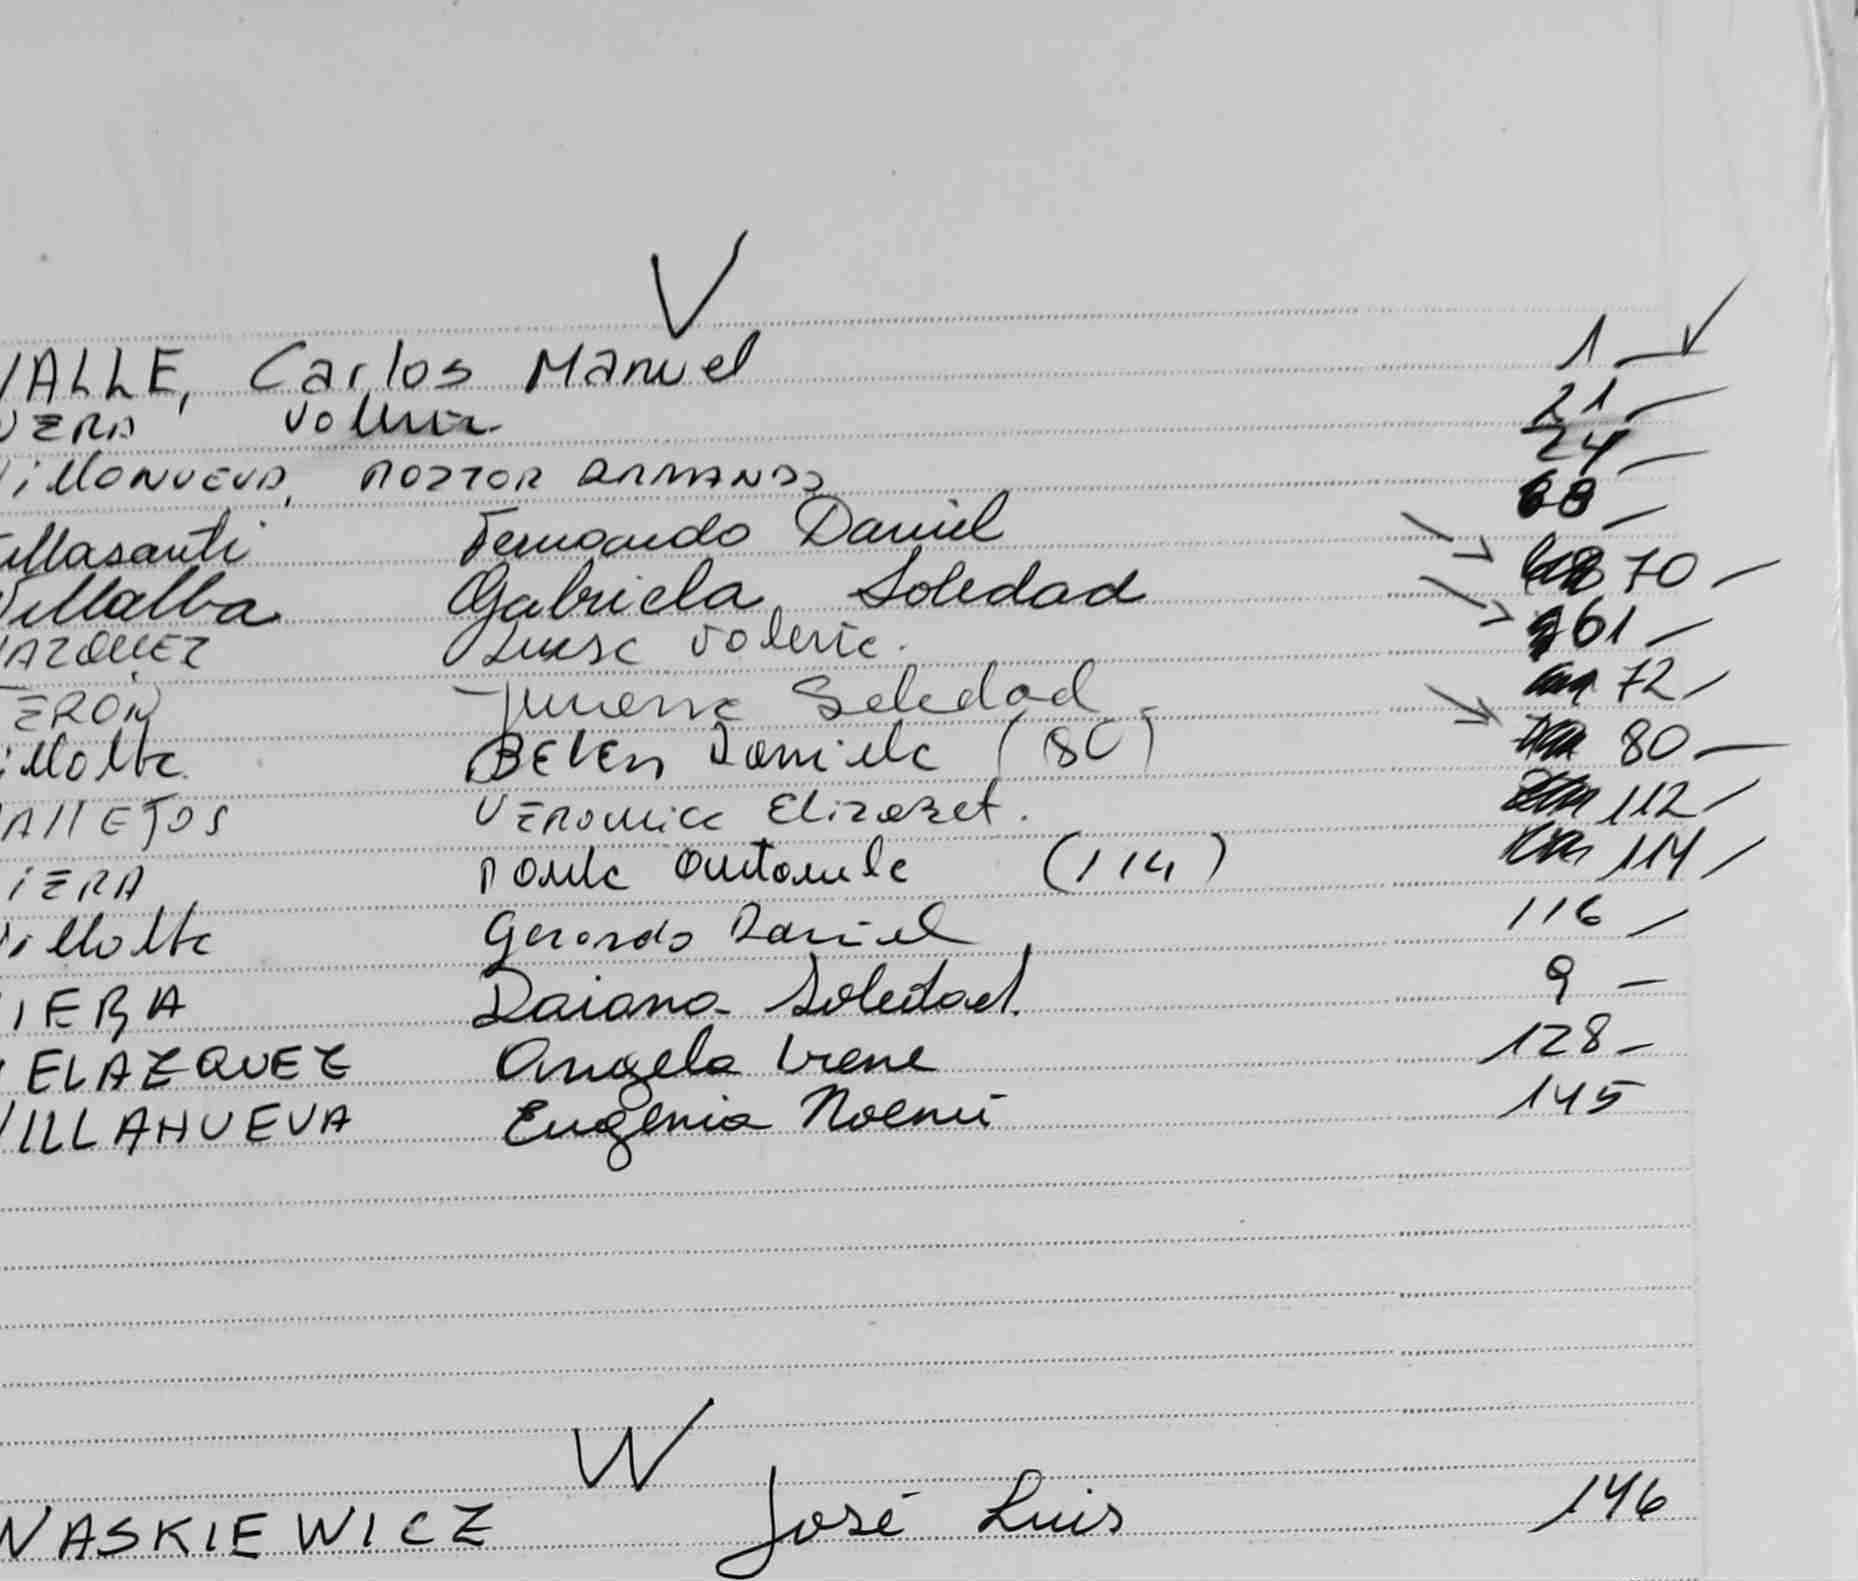 V
VALLE, Carlos Manuel 1
VERA 21
VillaNUEVA, ARMANDO 24
Villasanti Fernando Daniel 68
Villalba Gabriela Soledad 70
VAZQUEZ Valeria. 61
VERON Soledad 72
Villalba BELEN Daniela (80) 80
VALLEJOS VERONICA Elizabet. 112
VIERA Antonela (114) 114
Villalba Gerardo Daniel 116
VIERA Daiana Soledad. 9
VELAZQUEZ Angela Irene 128
VILLANUEVA Eugenia Noemí 145
W
WASKIEWICZ José Luis 146